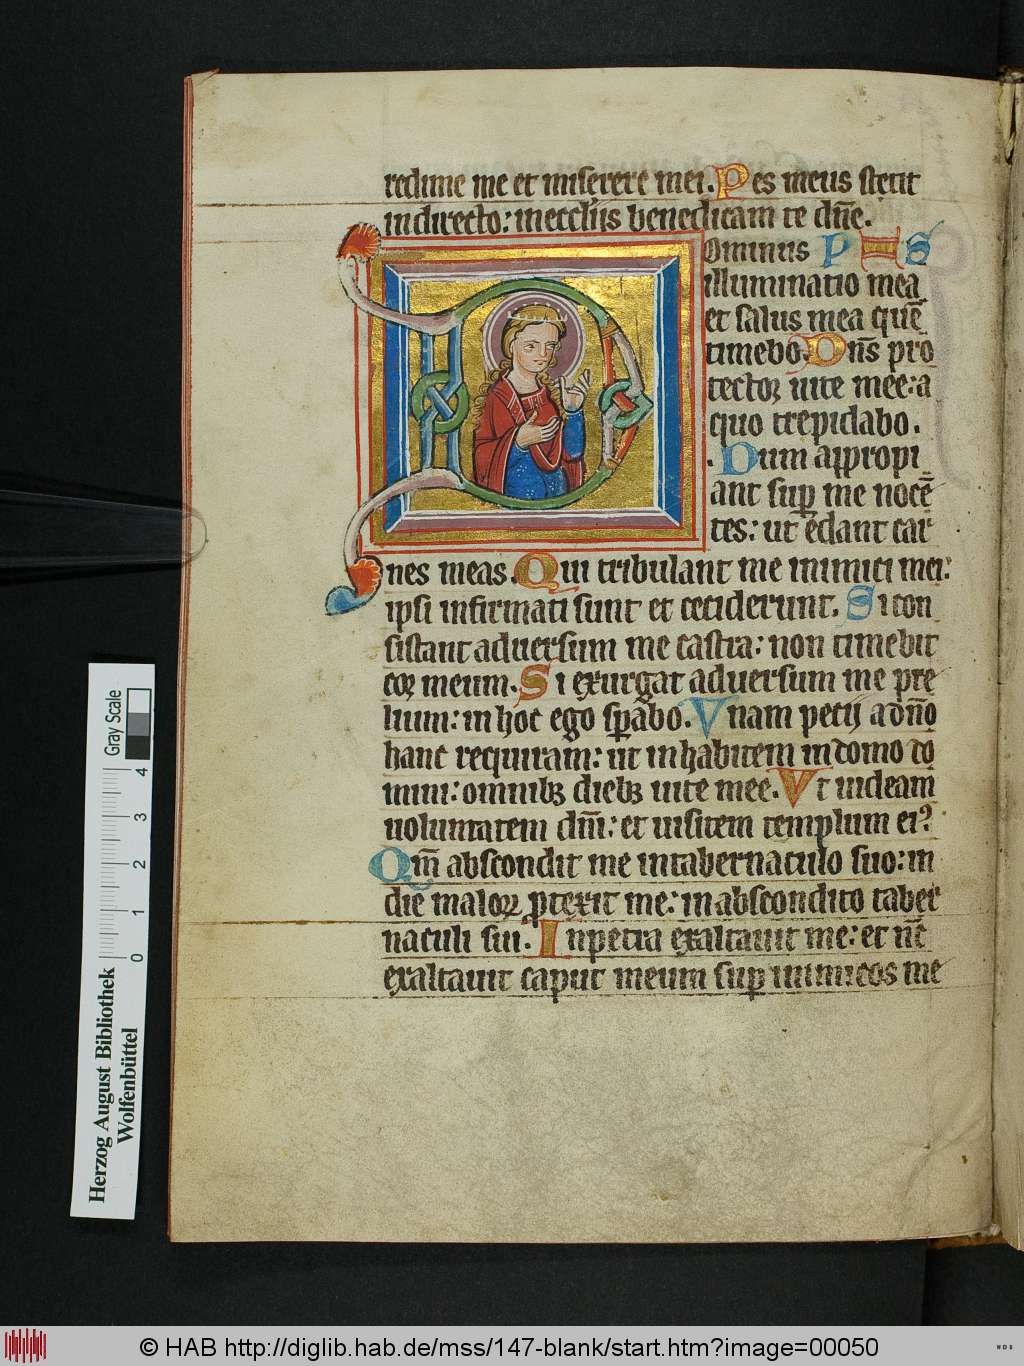 redime me et miserere mei. Pes meus stetit
in directo: in eccl'iis benedicam te dn̄e.
Ominus P H S
illuminatio mea
et salus mea quē
timebo. Dn̄s pro
tector uite mee: a
quo trepidabo.
Dum appropi
ant sup me nocē
tes: ut edant car
nes meas. Qui tribulant me inimici mei:
ipsi infirmati sunt et ceciderunt. Si con
sistant aduersum me castra: non timebit
cor meum. Si exurgat aduersum me pre
lium: in hoc ego sp̄abo. Vnam pecij a dn̄o
hanc requiram: ut inhabitem in domo do
mini: omnibꝫ diebꝫ uite mee. Vt uideam
uoluntatem dn̄i: et uisitem templum ei?
Qm̄ abscondit me in tabernaculo suo: in
die maloꝝ ꝓtexit me: in abscondito taber
naculi sui. In petra exaltauit me: et nc̄
exaltauit caput meum suꝑ inimicos me
Gray Scale
4
3
2
1
0
Herzog August Bibliothek
Wolfenbüttel
© HAB http://diglib.hab.de/mss/147-blank/start.htm?image=00050